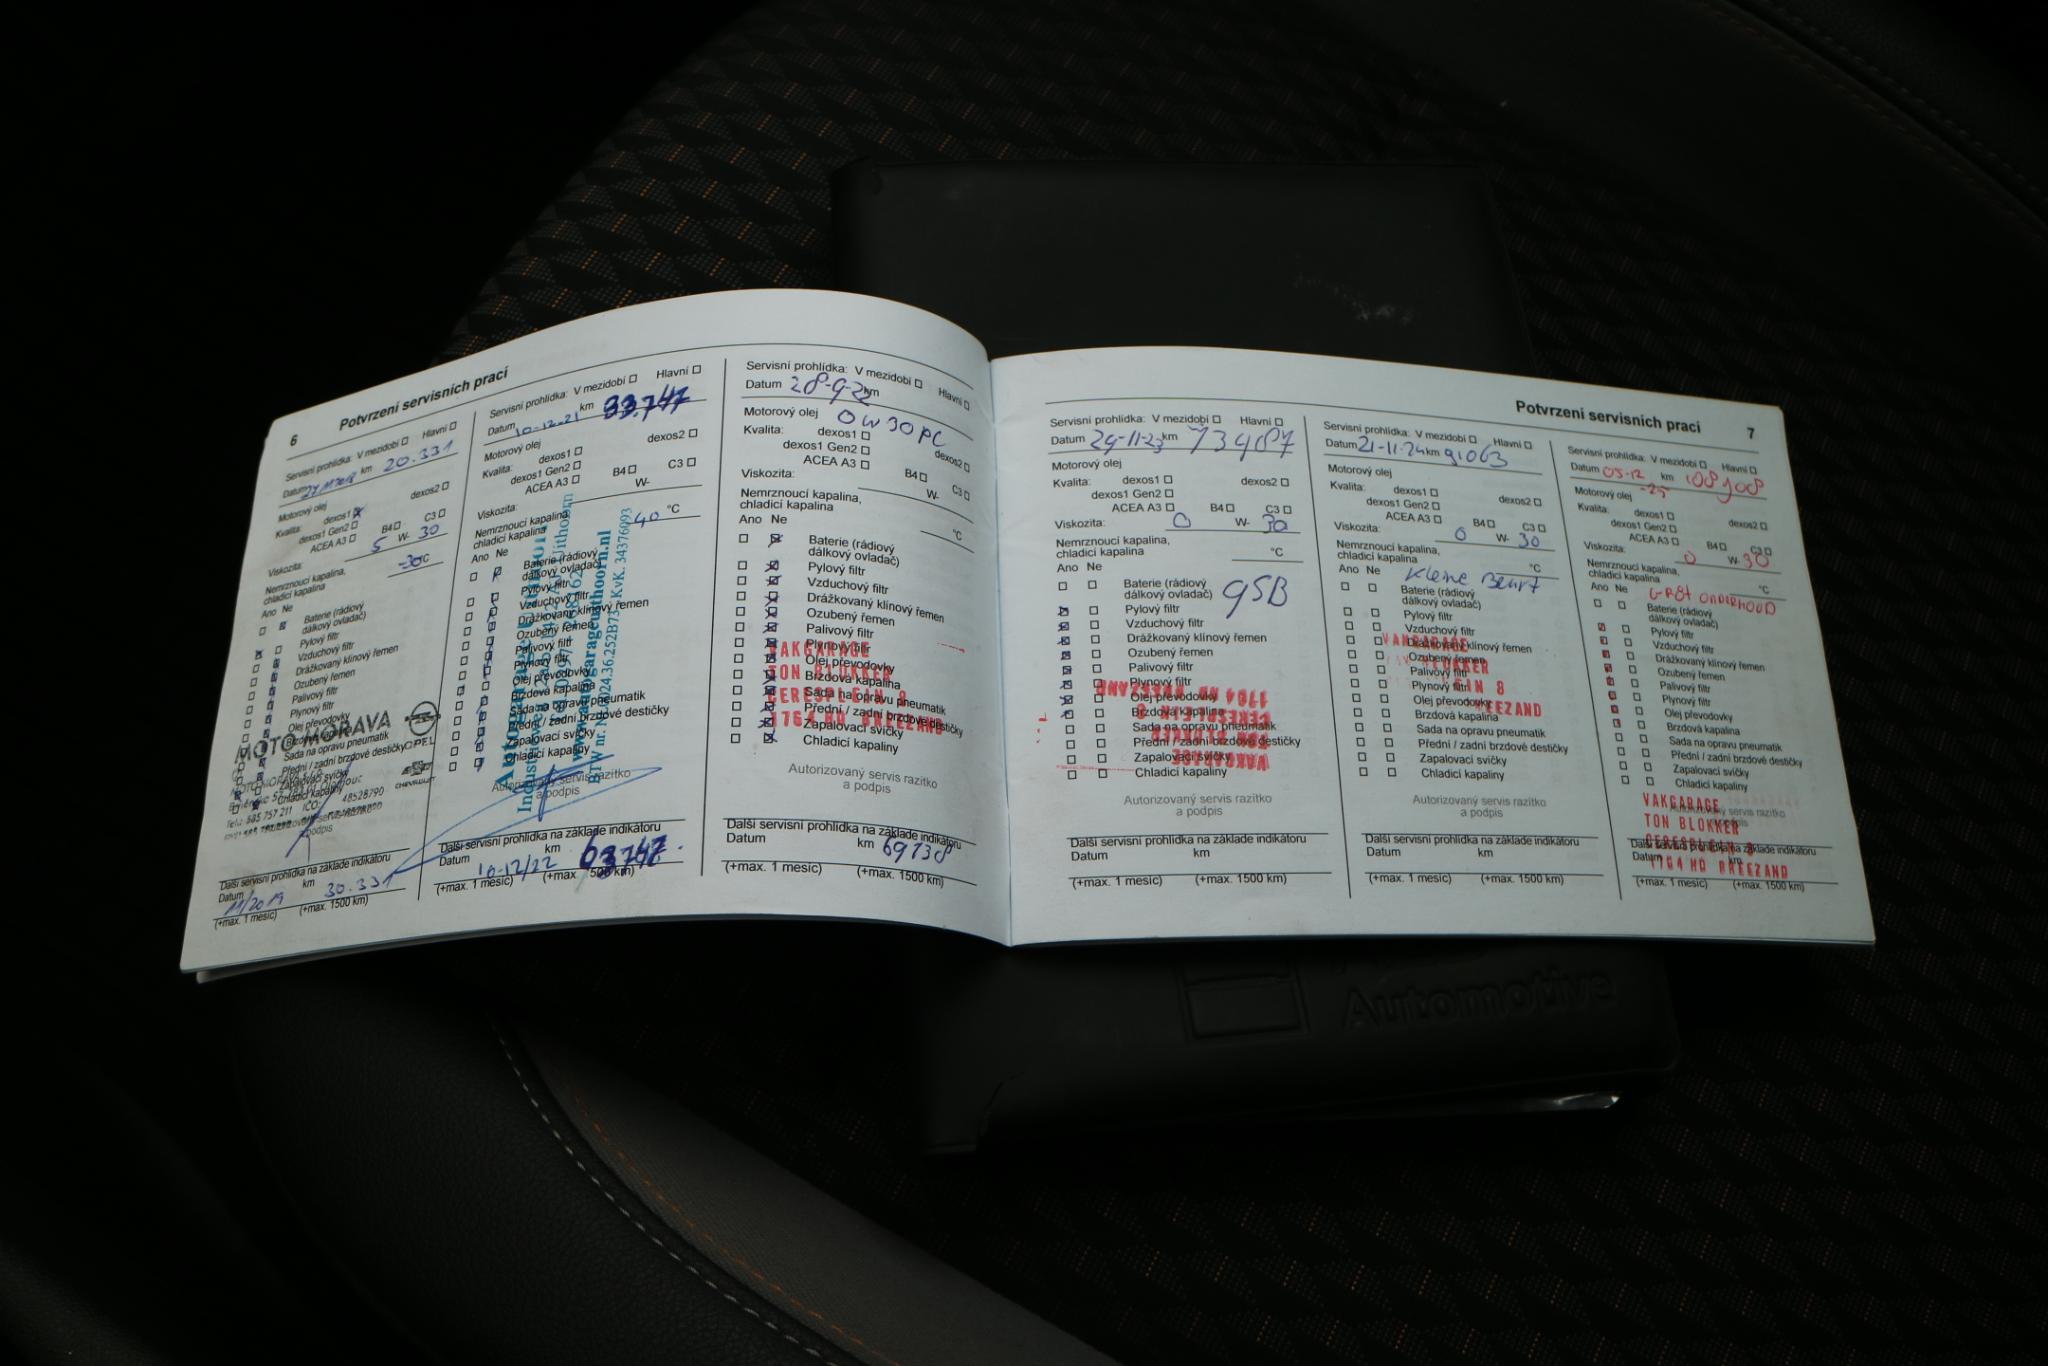 6 Potvrzení servisních prací
Servisní prohlídka: V mezidobí Hlavní
Datum km 20.331
Motorový olej
Kvalita: dexos1 dexos2
dexos1 Gen2
ACEA A3 B4 C3
Viskozita: 5 W- 30
Nemrznoucí kapalina,
chladicí kapalina -30°C
Ano Ne
Baterie (rádiový
dálkový ovladač)
Pylový filtr
Vzduchový filtr
Drážkovaný klínový řemen
Ozubený řemen
Palivový filtr
Plynový filtr
Olej převodovky
Brzdová kapalina
Sada na opravu pneumatik
Přední / zadní brzdové destičky
Zapalovací svíčky
Chladicí kapaliny
MOTO MORAVA
OPEL
CHEVROLET
Další servisní prohlídka na základě indikátoru
Datum 11/2019 km 30.331
(+max. 1 měsíc) (+max. 1500 km)
Servisní prohlídka: V mezidobí Hlavní
Datum 10-12-21 km 33.747
Motorový olej
Kvalita: dexos1 dexos2
dexos1 Gen2
ACEA A3 B4 C3
Viskozita: W-
Nemrznoucí kapalina,
chladicí kapalina 40 °C
Ano Ne
Baterie (rádiový
dálkový ovladač)
Pylový filtr
Vzduchový filtr
Drážkovaný klínový řemen
Ozubený řemen
Palivový filtr
Plynový filtr
Olej převodovky
Brzdová kapalina
Sada na opravu pneumatik
Přední / zadní brzdové destičky
Zapalovací svíčky
Chladicí kapaliny
www.autogarageuithoorn.nl
KvK. 34376093
Autorizovaný servis razítko
a podpis
Další servisní prohlídka na základě indikátoru
Datum 10-12/22 km 63.747.
(+max. 1 měsíc) (+max. 1500 km)
Servisní prohlídka: V mezidobí Hlavní
Datum 28-9-22 km
Motorový olej 0W30 PC
Kvalita: dexos1 dexos2
dexos1 Gen2
ACEA A3 B4 C3
Viskozita: W-
Nemrznoucí kapalina,
chladicí kapalina °C
Ano Ne
Baterie (rádiový
dálkový ovladač)
Pylový filtr
Vzduchový filtr
Drážkovaný klínový řemen
Ozubený řemen
Palivový filtr
Plynový filtr
Olej převodovky
Brzdová kapalina
Sada na opravu pneumatik
Přední / zadní brzdové destičky
Zapalovací svíčky
Chladicí kapaliny
VAKGARAGE
TON BLOKKER
CERESPLEIN 8
1764 HD BREEZAND
Autorizovaný servis razítko
a podpis
Další servisní prohlídka na základě indikátoru
Datum km 69738
(+max. 1 měsíc) (+max. 1500 km)
Potvrzení servisních prací 7
Servisní prohlídka: V mezidobí Hlavní
Datum 29-11-23 km 73987
Motorový olej
Kvalita: dexos1 dexos2
dexos1 Gen2
ACEA A3 B4 C3
Viskozita: 0 W- 30
Nemrznoucí kapalina,
chladicí kapalina °C
Ano Ne
Baterie (rádiový
dálkový ovladač)
Pylový filtr
Vzduchový filtr
Drážkovaný klínový řemen
Ozubený řemen
Palivový filtr
Plynový filtr
Olej převodovky
Brzdová kapalina
Sada na opravu pneumatik
Přední / zadní brzdové destičky
Zapalovací svíčky
Chladicí kapaliny
VAKGARAGE
TON BLOKKER
CERESPLEIN 8
1764 HD BREEZAND
Autorizovaný servis razítko
a podpis
Další servisní prohlídka na základě indikátoru
Datum km
(+max. 1 měsíc) (+max. 1500 km)
Servisní prohlídka: V mezidobí Hlavní
Datum 21-11-24 km 91063
Motorový olej
Kvalita: dexos1 dexos2
dexos1 Gen2
ACEA A3 B4 C3
Viskozita: 0 W- 30
Nemrznoucí kapalina,
chladicí kapalina °C
Ano Ne Kleine Beurt
Baterie (rádiový
dálkový ovladač)
Pylový filtr
Vzduchový filtr
Drážkovaný klínový řemen
Ozubený řemen
Palivový filtr
Plynový filtr
Olej převodovky
Brzdová kapalina
Sada na opravu pneumatik
Přední / zadní brzdové destičky
Zapalovací svíčky
Chladicí kapaliny
VAKGARAGE
BLOKKER
EIN 8
REEZAND
Autorizovaný servis razítko
a podpis
Další servisní prohlídka na základě indikátoru
Datum km
(+max. 1 měsíc) (+max. 1500 km)
Servisní prohlídka: V mezidobí Hlavní
Datum 05-12 km 108908
Motorový olej -25
Kvalita: dexos1 dexos2
dexos1 Gen2
ACEA A3 B4 C3
Viskozita: 0 W- 30
Nemrznoucí kapalina,
chladicí kapalina °C
Ano Ne GROT ONDERHOUD
Baterie (rádiový
dálkový ovladač)
Pylový filtr
Vzduchový filtr
Drážkovaný klínový řemen
Ozubený řemen
Palivový filtr
Plynový filtr
Olej převodovky
Brzdová kapalina
Sada na opravu pneumatik
Přední / zadní brzdové destičky
Zapalovací svíčky
Chladicí kapaliny
VAKGARAGE
TON BLOKKER
CERESPLEIN 8
1764 HD BREEZAND
Další servisní prohlídka na základě indikátoru
Datum km
(+max. 1 měsíc) (+max. 1500 km)
Automotive